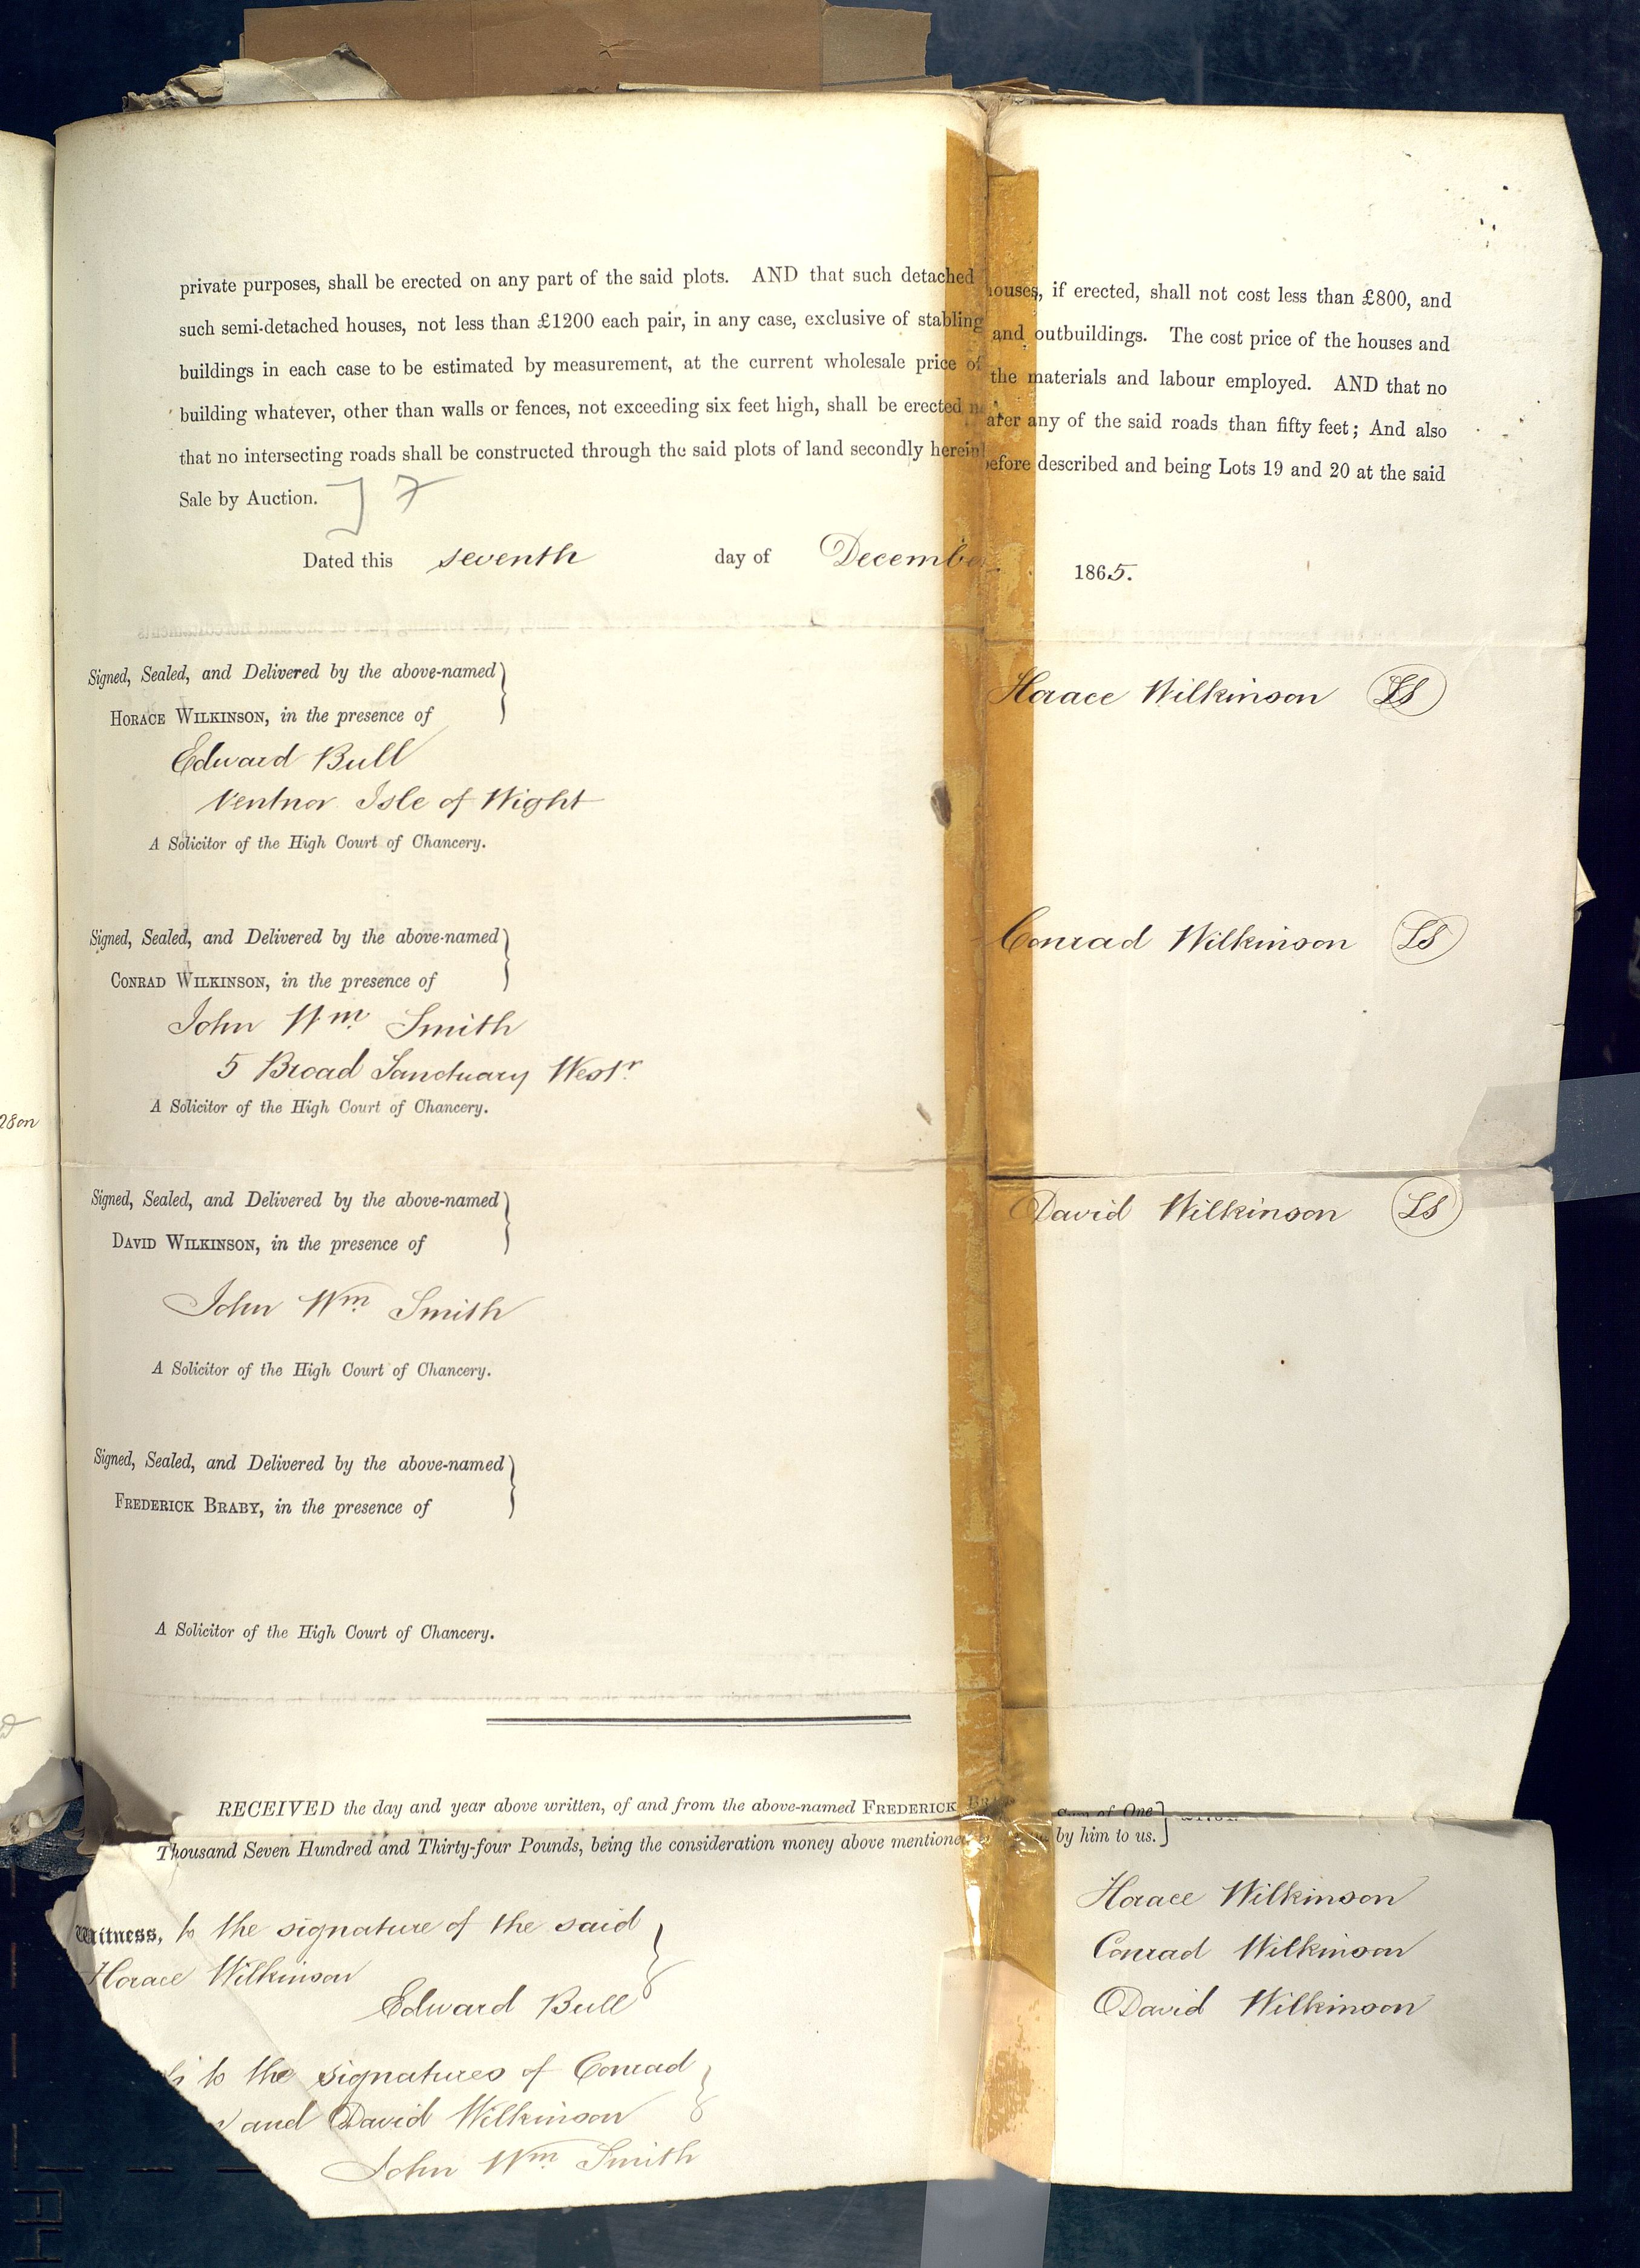 private purposes, shall be erected on any part of the said plots. AND that such detached houses, if erected, shall not cost less than £800, and
such semi-detached houses, not less than £1200 each pair, in any case, exclusive of stabling and outbuildings. The cost price of the houses and
buildings in each case to be estimated by measurement, at the current wholesale price of the materials and labour employed. AND that no
building whatever, other than walls or fences, not exceeding six feet high, shall be erected nearer any of the said roads than fifty feet; And also
that no intersecting roads shall be constructed through the said plots of land secondly hereinbefore described and being Lots 19 and 20 at the said
Sale by Auction. ] 7
Dated this seventh day of December 1865.
Signed, Sealed, and Delivered by the above-named
HORACE WILKINSON, in the presence of
Horace Wilkinson LS
Edward Bull
Ventnor Isle of Wight
A Solicitor of the High Court of Chancery.
Signed, Sealed, and Delivered by the above-named
CONRAD WILKINSON, in the presence of
Conrad Wilkinson LS
John Wm. Smith
5 Broad Sanctuary Westr.
A Solicitor of the High Court of Chancery.
28on
Signed, Sealed, and Delivered by the above-named
DAVID WILKINSON, in the presence of
David Wilkinson LS
John Wm. Smith
A Solicitor of the High Court of Chancery.
Signed, Sealed, and Delivered by the above-named
FREDERICK BRABY, in the presence of
A Solicitor of the High Court of Chancery.
RECEIVED the day and year above written, of and from the above-named FREDERICK Sum of One
Thousand Seven Hundred and Thirty-four Pounds, being the consideration money above mentioned by him to us.
Horace Wilkinson
Conrad Wilkinson
David Wilkinson
Witness, to the signature of the said
Horace Wilkinson
Edward Bull
to the signatures of Conrad
and David Wilkinson
John Wm. Smith